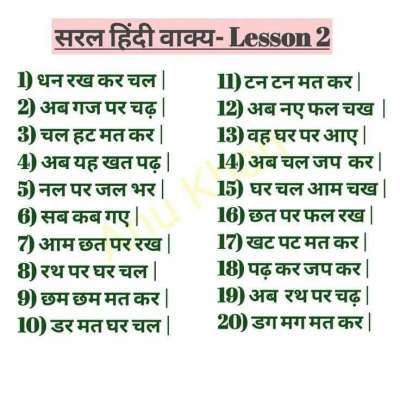 सरल हिंदी वाक्य- Lesson 2
1) धन रख कर चल |
2) अब गज पर चढ़ |
3) चल हट मत कर |
4) अब यह खत पढ़ |
5) नल पर जल भर |
6) सब कब गए |
7) आम छत पर रख |
8) रथ पर घर चल |
9) छम छम मत कर |
10) डर मत घर चल |
11) टन टन मत कर |
12) अब नए फल चख |
13) वह घर पर आए |
14) अब चल जप कर |
15) घर चल आम चख |
16) छत पर फल रख |
17) खट पट मत कर |
18) पढ़ कर जप कर |
19) अब रथ पर चढ़ |
20) डग मग मत कर |
Anu Khan